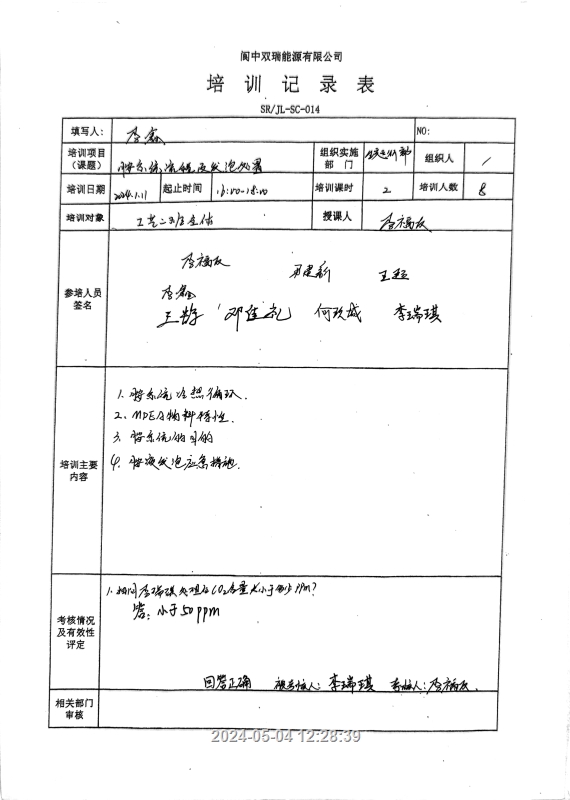 阆中双瑞能源有限公司
培 训 记 录 表
SR/JL-SC-014
填写人： 李鑫 NO:
培训项目（课题） 胺系统流程及发泡处置 组织实施部 门 组织人 /
培训日期 2024.1.11 起止时间 16:00-18:00 培训课时 2 培训人数 8
培训对象 工艺二班全体 授课人 李福友
参培人员签名
李福友 邓建新 王超
李鑫
王静 邓佳礼 何玖城 李瑞琪
培训主要内容
1. 胺系统冷热循环.
2、MDEA物料特性.
3. 胺系统的目的
4. 胺液发泡应急措施.
考核情况及有效性评定
1. 提问李瑞琪处理后CO2含量应小于多少PPm?
答：小于50PPM
回答正确 被考核人：李瑞琪 考核人：李福友.
相关部门审核
2024-05-04 12:28:39